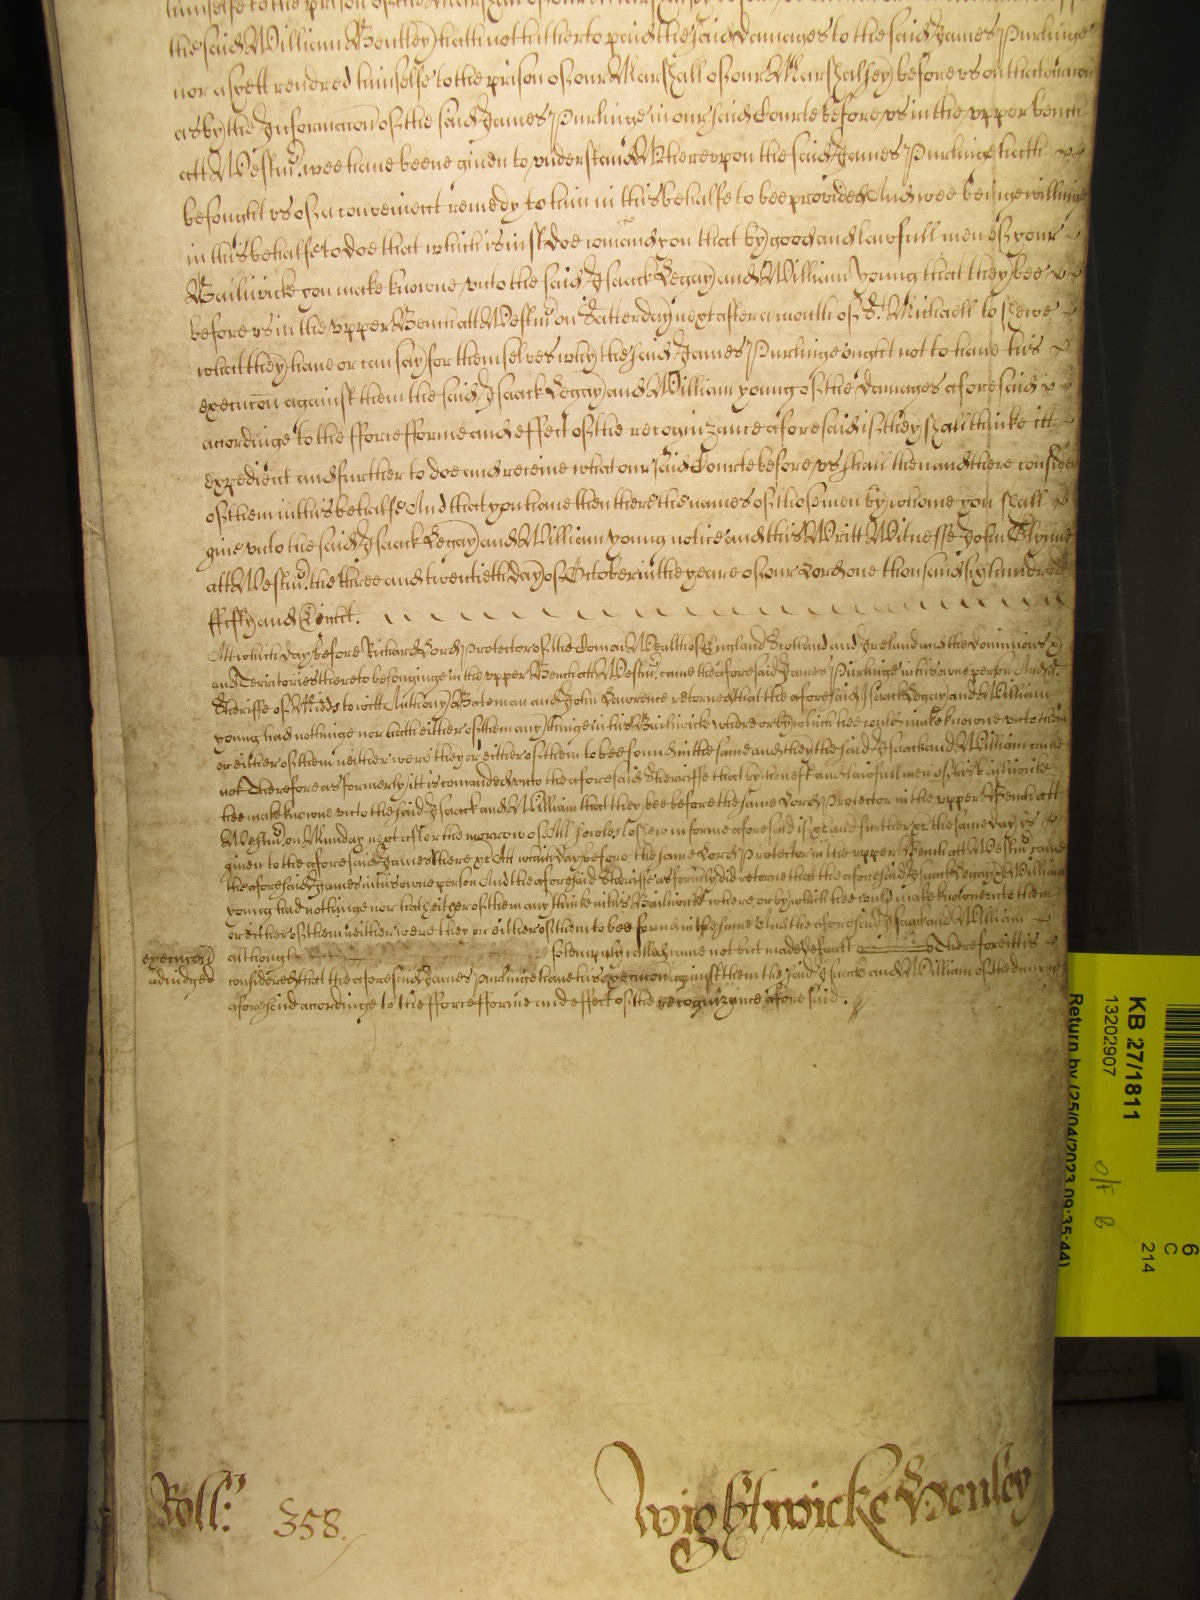 himselfe to the prison of the Marshall of our Marshalsey
the said William Bentley hath not hitherto paid the said damages to the said James Purlinge
nor as yett rendred himselfe to the prison of our Marshall of our Marshalsey before vs on that occacon
as by the Informacon of the said James Purlinge in our said Courte before vs in the vpper bench
att Westmr. wee haue beene giuen to vnderstand Wherevpon the said James Purlinge hath
besought vs of a convenient remedy to him in this behalfe to bee provided And wee beinge willinge
in this behalfe to doe that which is iust doe comand you that by good and lawfull men of your
Bailiwicke you make knowne vnto the said Isaack Legay and William Young that they bee
before vs in the vpper Bench att Westmr. on Satterday next after a month of St. Michaell to shewe
what they haue or can say for themselves why the said James Purlinge ought not to haue his
execucon against them the said Isaack Legay and William young of the damages aforesaid
acordinge to the fforce fforme and effect of the recognizance aforesaid if they shall thinke itt
expedient and further to doe and receiue what our said Courte before vs shall then and there consider
of them in this behalfe And that you haue then there the names of those men by whome you shall
giue vnto the said Isaack Legay and William young notice and this Writt Witnesse John Glynne
att Westmr. the three and twentieth day of October in the yeare of our Lord one thousand six hundred
ffifty and Eight.
Att which day before Richard Lord Protector of the Comon Wealth of England Scotland and Ireland and the Dominions
and Territories thereto belonginge in the vpper Bench att Westmr. came the aforesaid James Purlinge in his owne person And the
Sheriffe of Middx to witt Anthony Bateman and John Lawrence returned that the aforesaid Isaack Legay and William
young had nothinge nor hath either of them any thinge in his Bailiwicke where or by which hee could make knowne vnto them
or either of them neither were they or either of them to bee found in the same and they the said Isaack and William came
not Therefore as formerly itt is comanded vnto the aforesaid Sherriffe that by honest and lawfull men of his bailiwicke
hee make knowne vnto the said Isaack and William that they bee before the same Lord Protector in the vpper Bench att
Westmr. on Munday next after the morrow of All soules to shew in forme aforesaid if &c and further &c the same day is
giuen to the aforesaid James there &c Att which day before the same Lord Protector in the vpper Bench att Westmr came
the aforesaid James in his owne person And the aforesaid Sheriffe as formerly did returne that the aforesaid Isaack Legay & William
young had nothinge nor hath either of them any thinke in his Bailiwick where or by which hee could make knowne to them
or either of them neither were they or either of them to bee found in the same And the aforesaid Isaack and William
execucon adiudged
although solempnly called came not but made default Therefore itt is
considered that the aforesaid James Purlinge haue his execucon against them the said Isaack and William of the damages
aforesaid acordinge to the fforce fforme and effect of the recognizance aforesaid.
Roll: 358.
Wightwicke Henley
KB 27/1811
13202907
Return by (25/04/2023 09:35:44)
O/F B
6
C
214